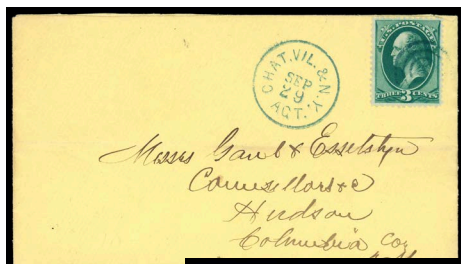 CHAT. VIL. & N.Y.
SEP
29
AGT.
U.S. POSTAGE
THREE 3 CENTS
Messrs Gaul & Esselstyn
Counsellors &c
Hudson
Columbia Co